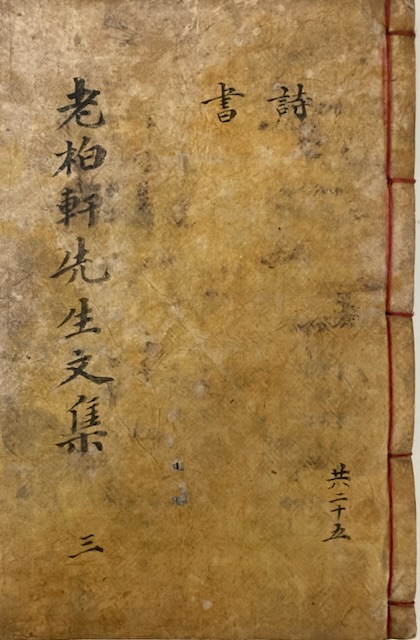 詩
書
共二十五
老柏軒先生文集
三